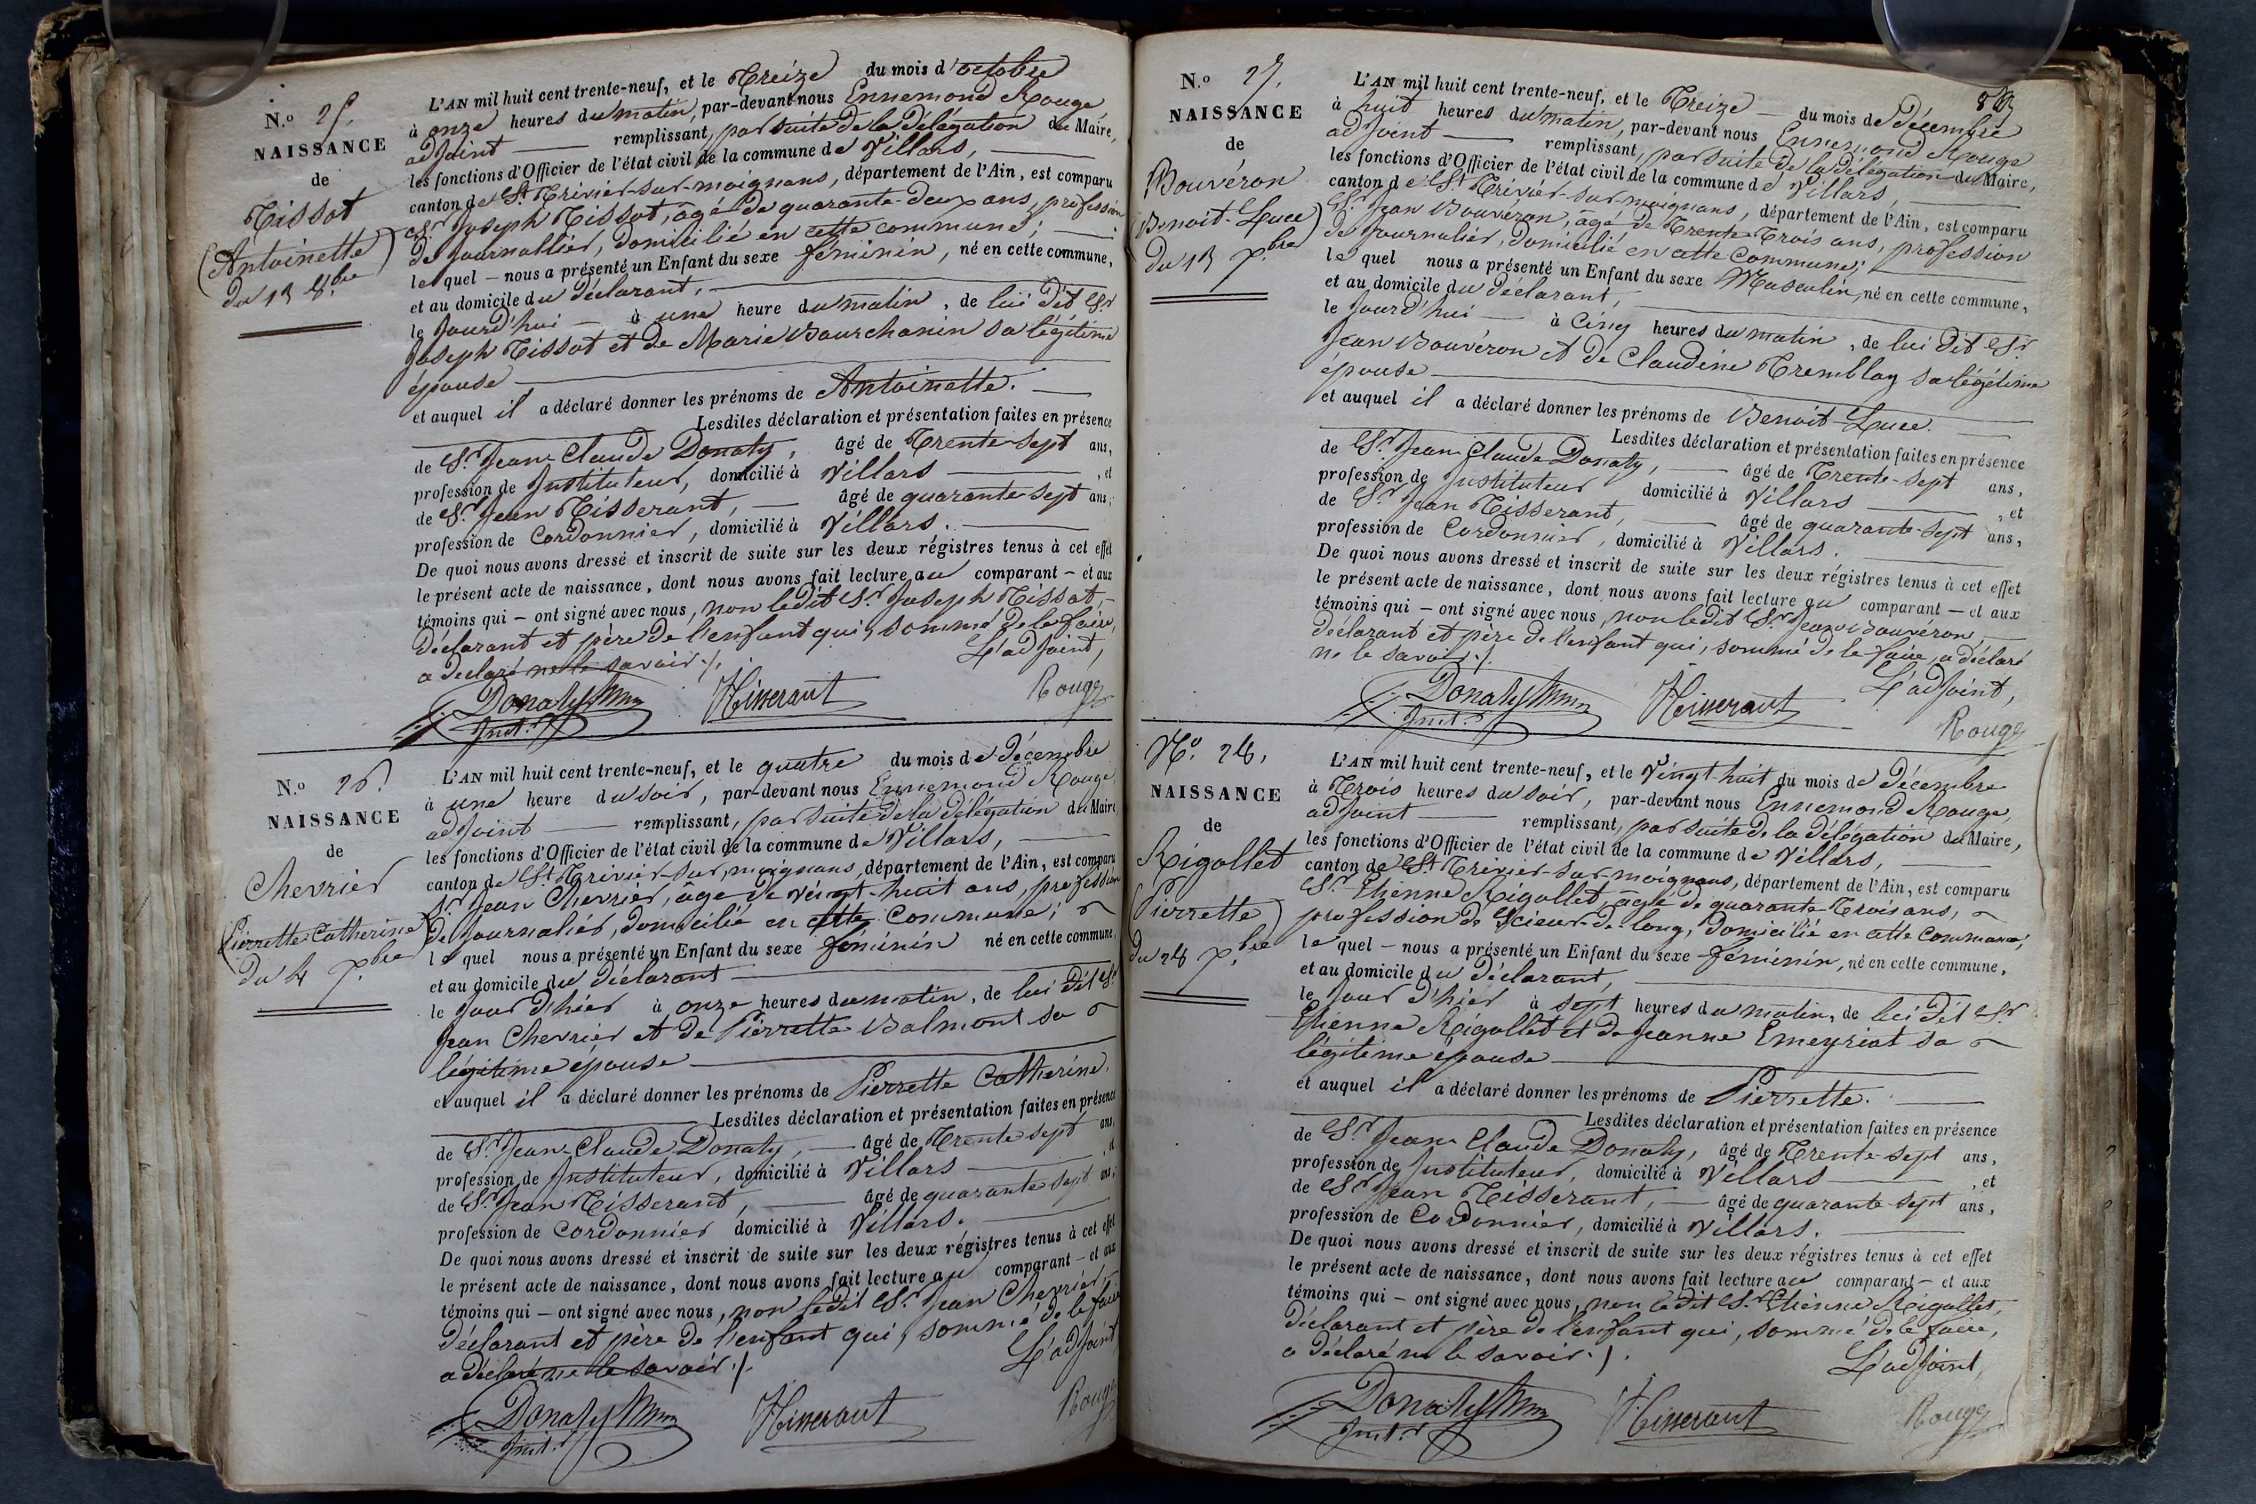 N.º 25.
NAISSANCE
de
Tissot
(Antoinette)
du 13 8.bre
L'AN mil huit cent trente-neuf, et le Treize du mois d'octobre
à onze heures du matin, par-devant nous Ennemond Rouge
adjoint remplissant, par suite de la délégation du Maire,
les fonctions d'Officier de l'état civil de la commune de Villars,
canton de St. Trivier-sur-moignans, département de l'Ain, est comparu
Sr. Joseph Tissot, âgé de quarante-deux ans, profession
de journallier, domicilié en cette commune;
lequel – nous a présenté un Enfant du sexe féminin, né en cette commune,
et au domicile du déclarant,
le jourd'hui à une heure du matin, de lui dit Sr.
Joseph Tissot et de Marie Bourchanin sa légitime
épouse
et auquel il a déclaré donner les prénoms de Antoinette.
Lesdites déclaration et présentation faites en présence
de Sr. Jean-Claude Donaty, âgé de Trente-sept ans,
profession de Instituteur, domicilié à Villars, et
de Sr. Jean Tisserant, âgé de quarante-sept ans,
profession de Cordonnier, domicilié à Villars.
De quoi nous avons dressé et inscrit de suite sur les deux régistres tenus à cet effet
le présent acte de naissance, dont nous avons fait lecture au comparant – et aux
témoins qui – ont signé avec nous, non ledit Sr. Joseph Tissot,
déclarant et père de l'enfant qui, sommé de le faire,
a déclaré ne le savoir ./.
L'adjoint,
Donaty
Inst.r
Tisserant
Rouge
N.º 26.
NAISSANCE
de
Chevrier
(Pierrette Catherine)
du 4 X.bre
L'AN mil huit cent trente-neuf, et le quatre du mois de décembre
à une heure du soir, par-devant nous Ennemond Rouge
adjoint remplissant, par suite de la délégation du Maire
les fonctions d'Officier de l'état civil de la commune de Villars,
canton de St. Trivier-sur-moignans, département de l'Ain, est comparu
Sr. Jean Chevrier, âgé de vingt-huit ans, profession
de journalier, domicilié en cette commune;
lequel nous a présenté un Enfant du sexe féminin né en cette commune,
et au domicile du déclarant
le jour d'hier à onze heures du matin, de lui dit Sr.
Jean Chevrier et de Pierrette Balmont sa
légitime épouse
et auquel il a déclaré donner les prénoms de Pierrette Catherine.
Lesdites déclaration et présentation faites en présence
de Sr. Jean-Claude Donaty, âgé de Trente sept ans,
profession de Instituteur, domicilié à Villars, et
de Sr. Jean Tisserant, âgé de quarante sept ans,
profession de Cordonnier domicilié à Villars.
De quoi nous avons dressé et inscrit de suite sur les deux régistres tenus à cet effet
le présent acte de naissance, dont nous avons fait lecture au comparant – et aux
témoins qui – ont signé avec nous, non ledit Sr. Jean Chevrier,
déclarant et père de l'enfant qui, sommé de le faire
a déclaré ne le savoir ./.
L'adjoint
Donaty
Inst.r
Tisserant
Rouge
N.º 27.
NAISSANCE
de
Bouvéron
(Benoit-Luce)
du 13 X.bre
L'AN mil huit cent trente-neuf, et le Treize du mois de décembre
à huit heures du matin, par-devant nous Ennemond Rouge
adjoint remplissant, par suite de la délégation du Maire,
les fonctions d'Officier de l'état civil de la commune de Villars,
canton de St. Trivier-sur-moignans, département de l'Ain, est comparu
Sr. Jean Bouvéron, âgé de Trente Trois ans, profession
de journalier, domicilié en cette Commune;
lequel nous a présenté un Enfant du sexe Masculin, né en cette commune,
et au domicile du déclarant,
le jourd'hui à Cinq heures du matin, de lui dit Sr.
Jean Bouvéron et de Claudine Tremblay sa légitime
épouse
et auquel il a déclaré donner les prénoms de Benoit-Luce.
Lesdites déclaration et présentation faites en présence
de Sr. Jean Claude Donaty, âgé de Trente-sept ans,
profession de Instituteur domicilié à Villars, et
de Sr. Jean Tisserant, âgé de quarante-sept ans,
profession de Cordonnier, domicilié à Villars.
De quoi nous avons dressé et inscrit de suite sur les deux régistres tenus à cet effet
le présent acte de naissance, dont nous avons fait lecture au comparant – et aux
témoins qui – ont signé avec nous, non ledit Sr. Jean Bouvéron,
déclarant et père de l'enfant qui, sommé de le faire, a déclaré
ne le savoir ./.
L'adjoint,
Donaty
Inst.r
Tisserant
Rouge
Nº. 28.
NAISSANCE
de
Rigollet
(Pierrette)
du 28 X.bre
L'AN mil huit cent trente-neuf, et le Vingt-huit du mois de décembre
à Trois heures du soir, par-devant nous Ennemond Rouge,
adjoint remplissant, par suite de la délégation du Maire,
les fonctions d'Officier de l'état civil de la commune de Villars,
canton de St. Trivier-sur-moignans, département de l'Ain, est comparu
Sr. Etienne Rigollet, âgé de quarante Trois ans,
profession de Scieur-de-long, domicilié en cette commune,
lequel – nous a présenté un Enfant du sexe féminin, né en cette commune,
et au domicile du déclarant,
le jour d'hier à sept heures du matin, de lui dit Sr.
Etienne Rigollet et de Jeanne Emeyriat sa
légitime épouse
et auquel il a déclaré donner les prénoms de Pierrette.
Lesdites déclaration et présentation faites en présence
de Sr. Jean Claude Donaty, âgé de Trente-sept ans,
profession de Instituteur, domicilié à Villars, et
de Sr. Jean Tisserant, âgé de quarante sept ans,
profession de Cordonnier, domicilié à Villars.
De quoi nous avons dressé et inscrit de suite sur les deux régistres tenus à cet effet
le présent acte de naissance, dont nous avons fait lecture au comparant – et aux
témoins qui – ont signé avec nous, non ledit Sr. Etienne Rigollet,
déclarant et père de l'enfant qui, sommé de le faire,
a déclaré ne le savoir ./.
L'adjoint,
Donaty
Inst.r
Tisserant
Rouge